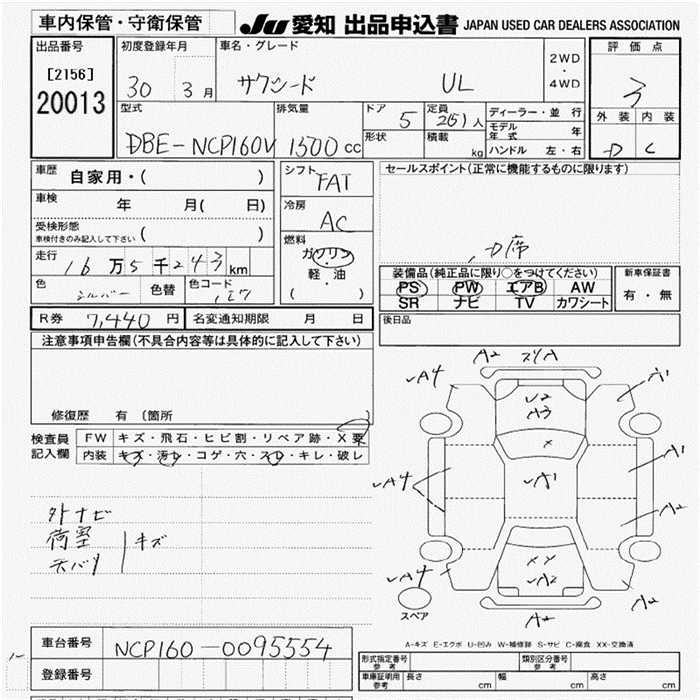 車内保管・守衛保管
JU 愛知 出品申込書 JAPAN USED CAR DEALERS ASSOCIATION
出品番号 初度登録年月 車名・グレード 2WD・4WD 評価点
[2156] 30 3月 サクシード UL 3
20013
型式 排気量 ドア 5 定員 2(5)人 ディーラー・並行 外装 内装
DBE-NCP160V 1500cc 形状 積載 kg モデル年式 年 D C
ハンドル 左・右
車歴 自家用・( ) シフト FAT セールスポイント(正常に機能するものに限ります)
車検 年 月( 日) 冷房 AC
受検形態 車検付きのみ記入して下さい ( ) 燃料 ガソリン
走行 16万5千243km 軽・油
色 シルバー 色替 色コード 1E7 ( )
装備品(純正品に限り○をつけてください) 新車保証書
PS PW エアB AW 有・無
SR ナビ TV カワシート
R券 7,440円 名変通知期限 月 日 後日品
注意事項申告欄(不具合内容等は具体的に記入して下さい)
修復歴 有 (箇所 )
検査員記入欄 FW キズ・飛石・ヒビ割・リペア跡・X要
内装 キズ・汚れ・コゲ・穴・スレ・キレ・破レ
外ナビ
荷室 キズ
天バリ
A2 スリA
✓A4 A1
U2
A3
X
✓A4 ✓A1 A1
A2
XY
✓A2
✓A4 A2
スペア A2
A-キズ E-エクボ U-凹み W-補修跡 S-サビ C-腐食 XX-交換済
車台番号 NCP160-0095554
登録番号
形式指定番号 参考 類別区分番号 参考
車庫証明用 参考 長さ cm 幅 cm 高さ cm